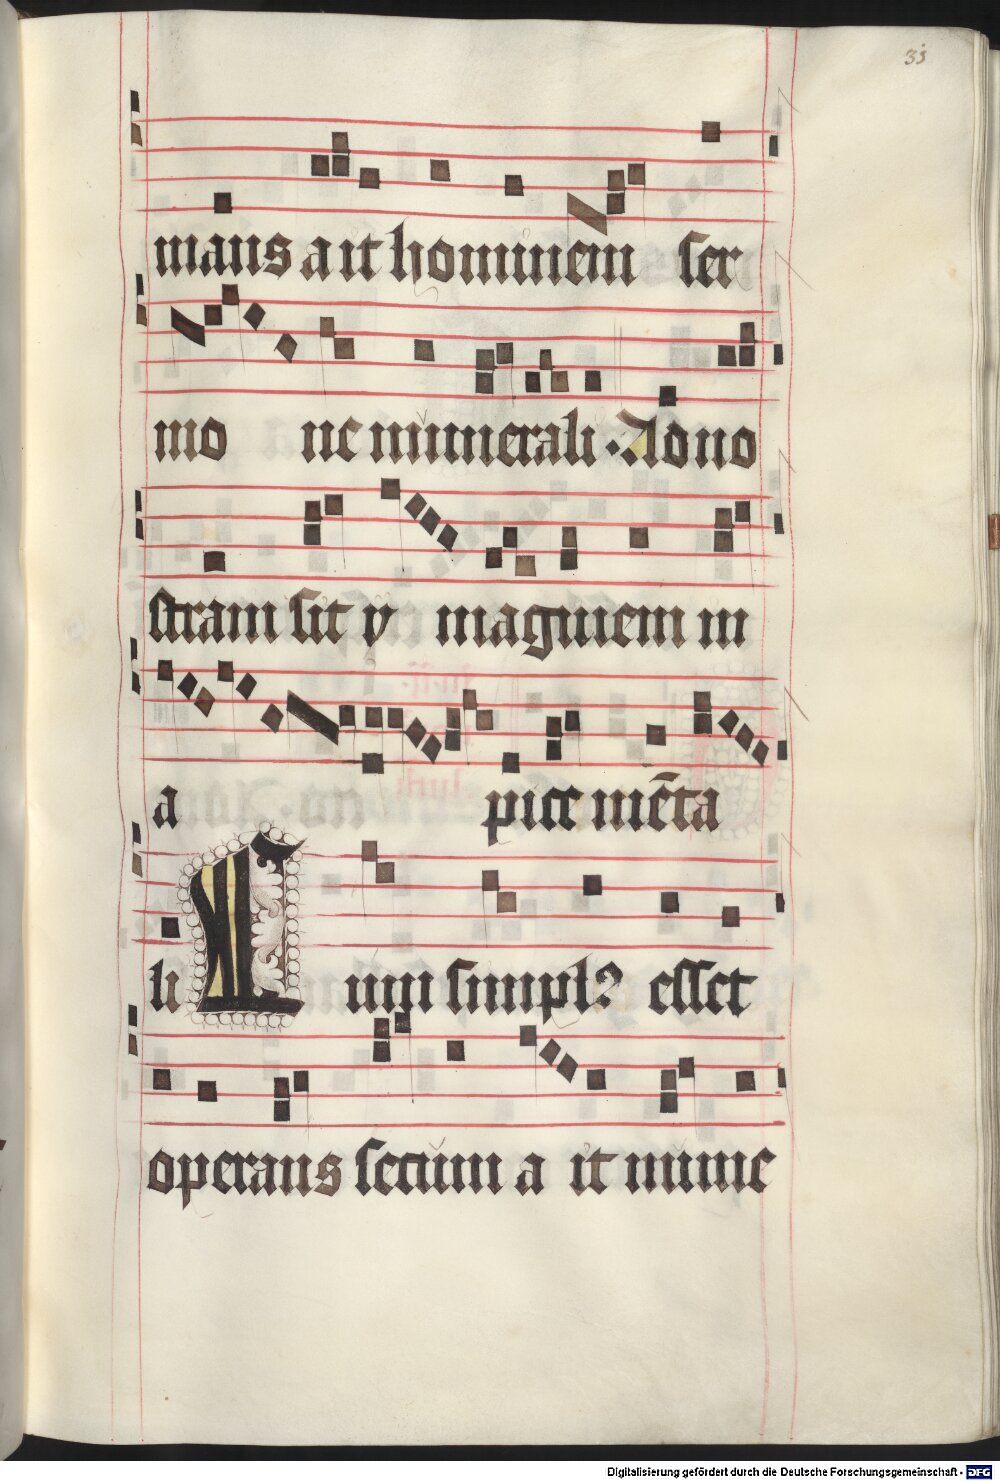 35
mans a it hominem ser
mo ne numerali. Ad no
stram sit y maginem in
a pice mēta
li Ni mpi simpl? esset
operans secum a it nume
Digitalisierung gefördert durch die Deutsche Forschungsgemeinschaft - DFG